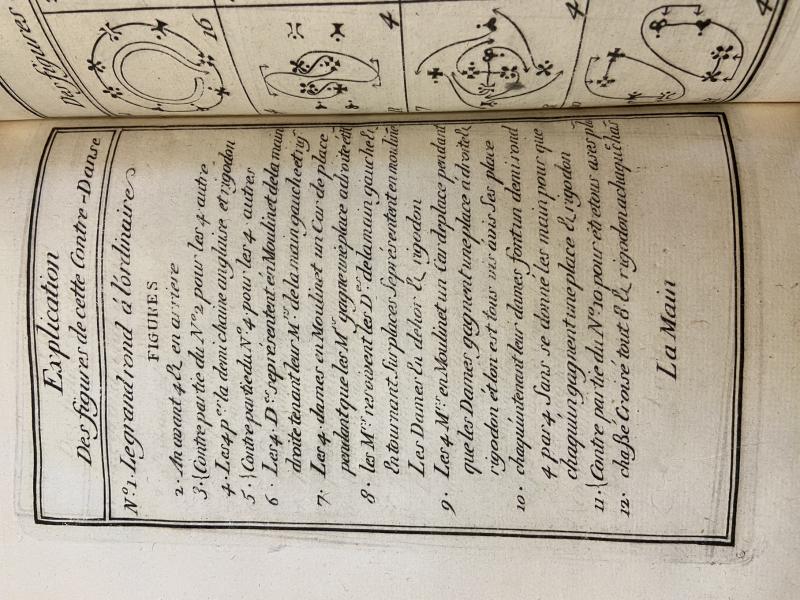 Des figures
16
4
4
4
7
8
Explication
Des figures de cette Contre-Danse
N.º 1. Le grand rond á l'ordinaire
FIGURES
2. An avant 4 & en arriere
3. {Contre partie du N.º 2 pour les 4 autre
4. Les 4 P.er la demi chaine anglaise et rigodon
5. {Contre partie du N.º 4 pour les 4 autres
6. Les 4 D.es se présentent en Moulinet de la main
droite tenant leur M.rs de la main gauche et rig
7. Les 4 dames en Moulinet un Car de place
pendant que les M.rs gagne une place a droite et
8. les M.rs resoivent les D.es de la main gauche &
En tournant Sur places Se presentent en mouline
Les Dames En dehor & rigodon
9. Les 4 M.rs en Moulinet un Car de place pendant
que les Dames gagnent une place a droite &
rigodon et lon est tous vis avis Ses place
10. chaqu'intenant leur dames font un demi rond
4 par 4 Sans se donné les main pour que
chaqu'un gagnent une place & rigodon
11. {Contre partie du N.º 10 pour etê tous a ses pla
12. chaßé Croisé tout 8 & rigodon a chaque chas
La Main